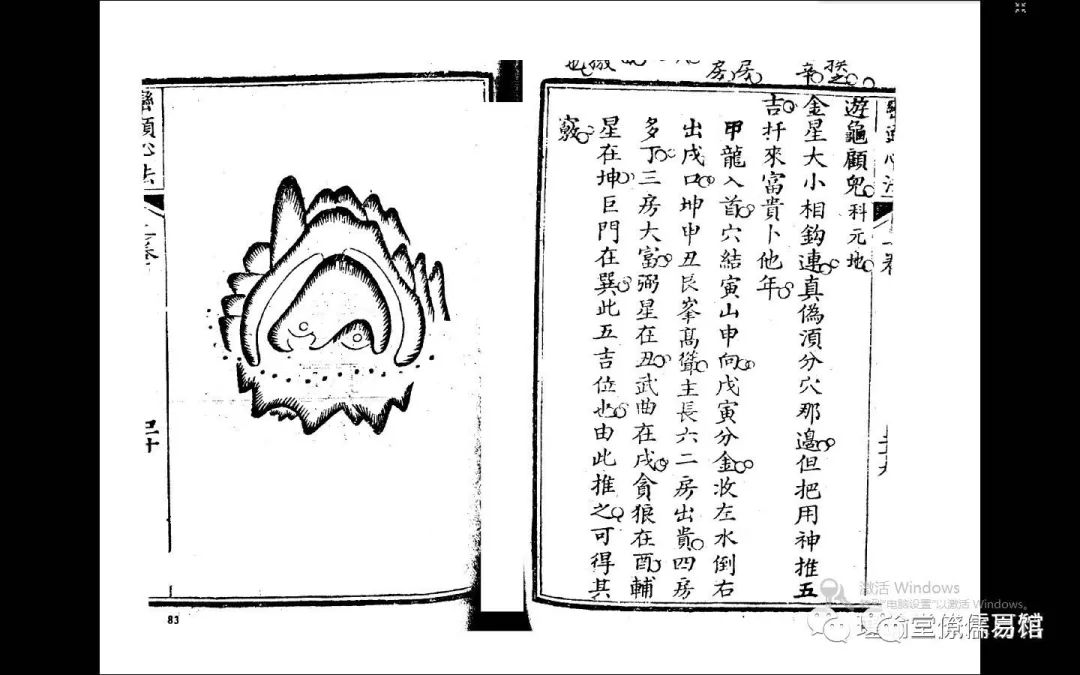 遊龜顧兒科元地
金星大小相鈎連真偽湏分穴那邊但把用神推五
吉扦來富貴卜他年
甲龍入首穴結寅山申向戊寅分金收左水倒右
出戌口坤申丑艮峯髙聳主長六二房出貴四房
多丁三房大富弼星在丑武曲在戌貪狼在酉輔
星在坤巨門在巽此五吉位也由此推之可得其
竅
巒頭心法
83
激活 Windows
转到"电脑设置"以激活 Windows。